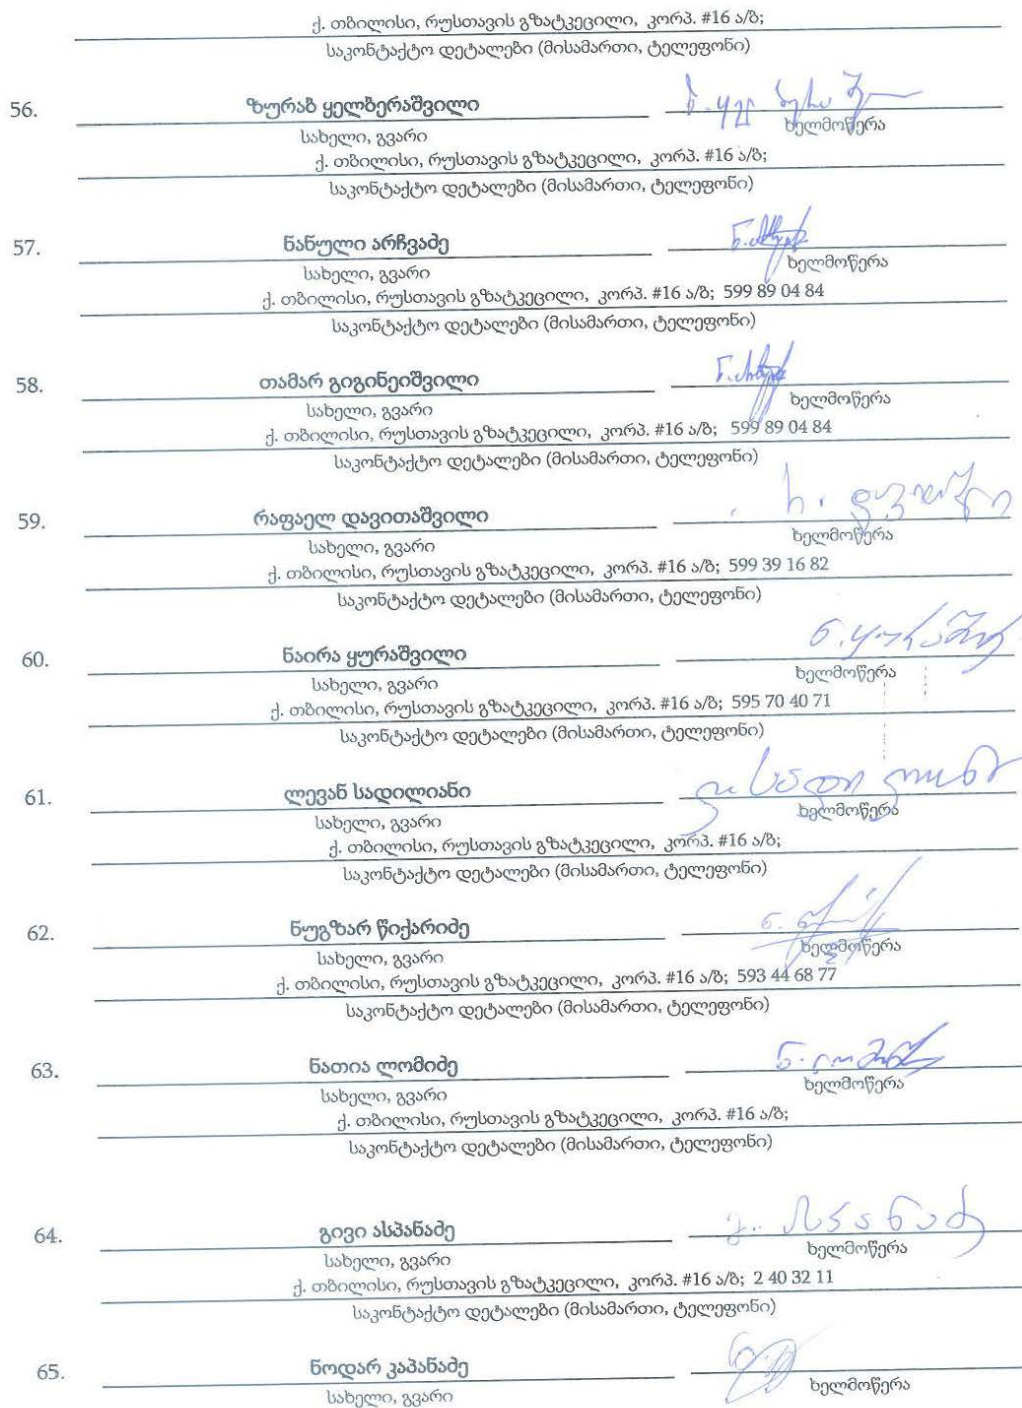 ქ. თბილისი, რუსთავის გზატკეცილი, კორპ. #16 ა/ბ;
საკონტაქტო დეტალები (მისამართი, ტელეფონი)
56. ზურაბ ყელბერაშვილი
სახელი, გვარი ხელმოწერა
ქ. თბილისი, რუსთავის გზატკეცილი, კორპ. #16 ა/ბ;
საკონტაქტო დეტალები (მისამართი, ტელეფონი)
57. ნანული არჩვაძე
სახელი, გვარი ხელმოწერა
ქ. თბილისი, რუსთავის გზატკეცილი, კორპ. #16 ა/ბ; 599 89 04 84
საკონტაქტო დეტალები (მისამართი, ტელეფონი)
58. თამარ გიგინეიშვილი
სახელი, გვარი ხელმოწერა
ქ. თბილისი, რუსთავის გზატკეცილი, კორპ. #16 ა/ბ; 599 89 04 84
საკონტაქტო დეტალები (მისამართი, ტელეფონი)
59. რაფაელ დავითაშვილი
სახელი, გვარი ხელმოწერა
ქ. თბილისი, რუსთავის გზატკეცილი, კორპ. #16 ა/ბ; 599 39 16 82
საკონტაქტო დეტალები (მისამართი, ტელეფონი)
60. ნაირა ყურაშვილი
სახელი, გვარი ხელმოწერა
ქ. თბილისი, რუსთავის გზატკეცილი, კორპ. #16 ა/ბ; 595 70 40 71
საკონტაქტო დეტალები (მისამართი, ტელეფონი)
61. ლევან სადილიანი
სახელი, გვარი ხელმოწერა
ქ. თბილისი, რუსთავის გზატკეცილი, კორპ. #16 ა/ბ;
საკონტაქტო დეტალები (მისამართი, ტელეფონი)
62. ნუგზარ წიქარიძე
სახელი, გვარი ხელმოწერა
ქ. თბილისი, რუსთავის გზატკეცილი, კორპ. #16 ა/ბ; 593 44 68 77
საკონტაქტო დეტალები (მისამართი, ტელეფონი)
63. ნათია ლომიძე
სახელი, გვარი ხელმოწერა
ქ. თბილისი, რუსთავის გზატკეცილი, კორპ. #16 ა/ბ;
საკონტაქტო დეტალები (მისამართი, ტელეფონი)
64. გივი ასპანაძე
სახელი, გვარი ხელმოწერა
ქ. თბილისი, რუსთავის გზატკეცილი, კორპ. #16 ა/ბ; 2 40 32 11
საკონტაქტო დეტალები (მისამართი, ტელეფონი)
65. ნოდარ კაპანაძე
სახელი, გვარი ხელმოწერა